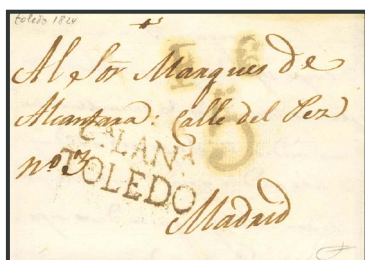 toledo 1824
Al Sor Marques de
Alcantara: Calle del Pez
5
nº 3
TALANA
TOLEDO
Madrid